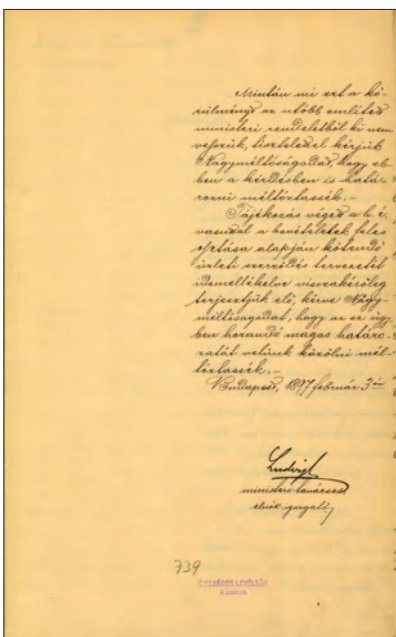 Mintán mi ezt a kö-
rülményt az utóbb említett
ministeri rendeletből ki nem
vesszük, tisztelettel kérjük
Nagyméltóságodat, hogy eb-
ben a kérdésben is hatá-
rozni méltóztassék. –
Tájékozás végett a h. é.
vasuttal a bevételek feles
osztása alapján kötendő
üzleti szerződés tervezetét
idemellékelve visszakérőleg
terjesztjük elő, kérve Nagy-
méltóságodat, hogy az ez ügy-
ben hozandó magas határo-
zatát velünk közölni mél-
tóztassék. –
Budapest, 1897 február 3án
Ludvigh
ministeri tanácsos
elnök igazgató
739
ORSZÁGOS LEVÉLTÁR